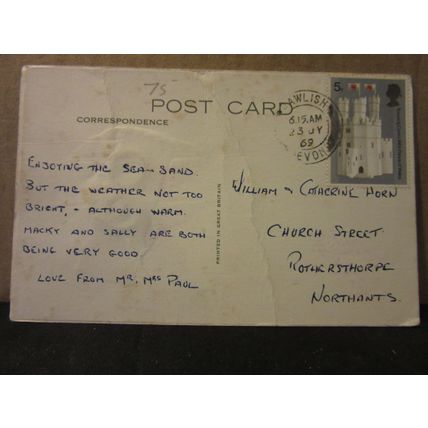 75
POST CARD
CORRESPONDENCE
ENJOYING THE SEA - SAND.
BUT THE WEATHER NOT TOO
BRIGHT, - ALTHOUGH WARM.
MACKY AND SALLY ARE BOTH
BEING VERY GOOD
LOVE FROM MR, MRS PAUL
PRINTED IN GREAT BRITAIN
AWLISH
6.15 AM
23 JY
69
DEVON
5D
WILLIAM & CATHERINE HORN
CHURCH STREET
ROTHERSTHORPE
NORTHANTS.